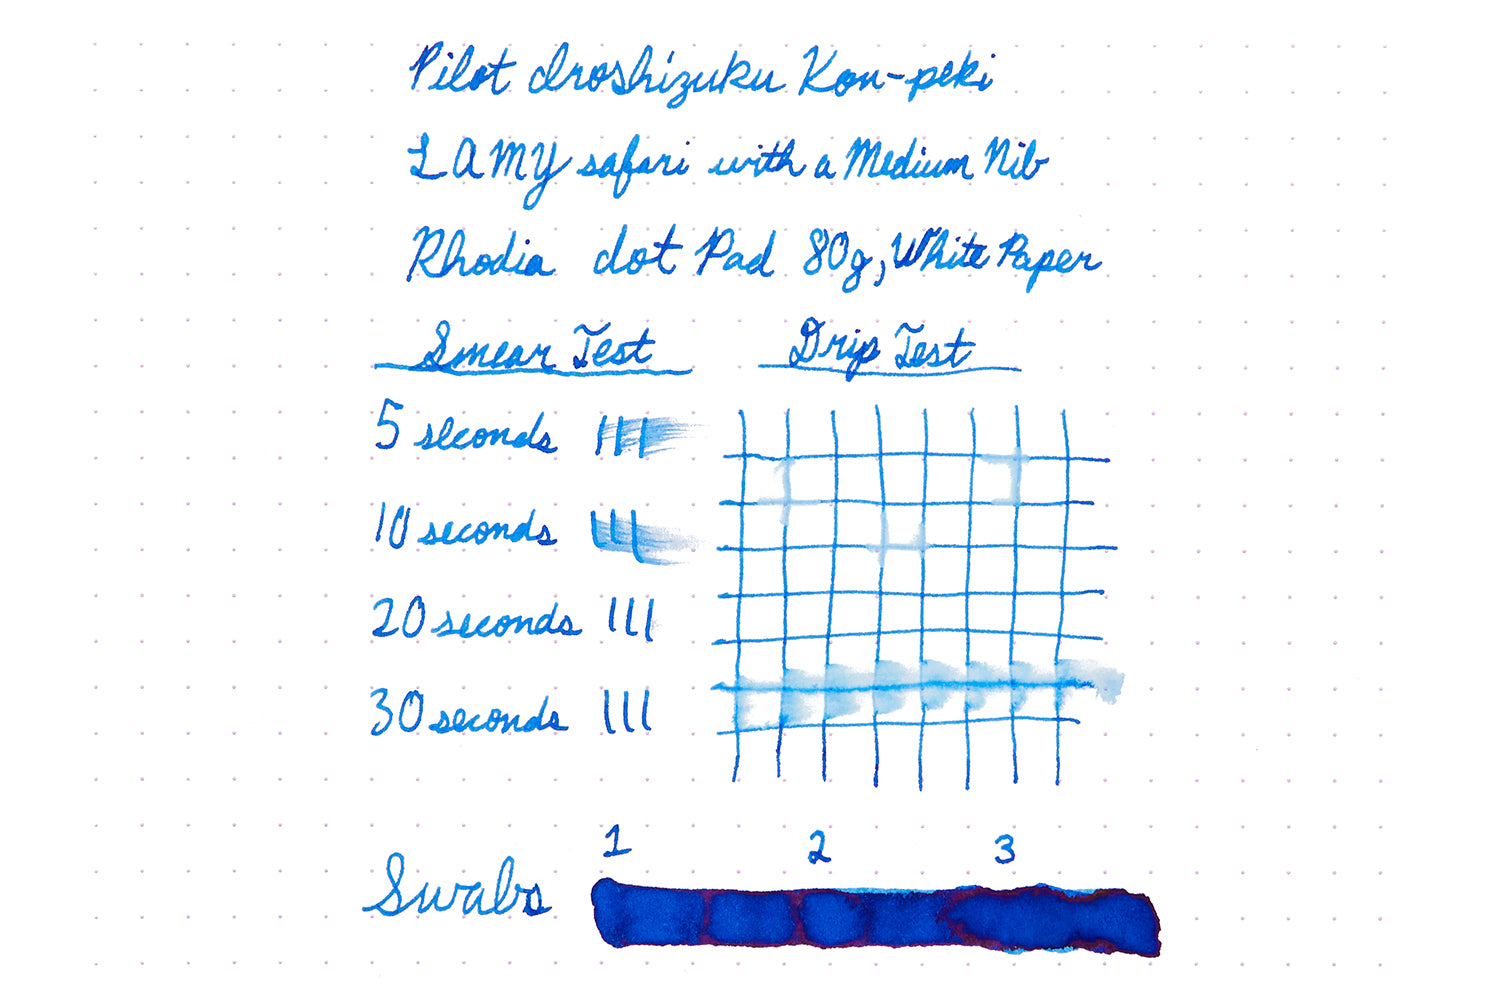 Pilot Iroshizuku Kon-peki
LAMY safari with a Medium Nib
Rhodia dot Pad 80g, White Paper
Smear Test
Drip Test
5 seconds
10 seconds
20 seconds
30 seconds
1 2 3
Swabs